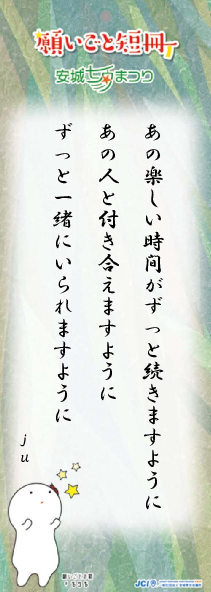 願いごと短冊
安城七夕まつり
あの楽しい時間がずっと続きますように
あの人と付き合えますように
ずっと一緒にいられますように
ju
願いごと短冊
JCI